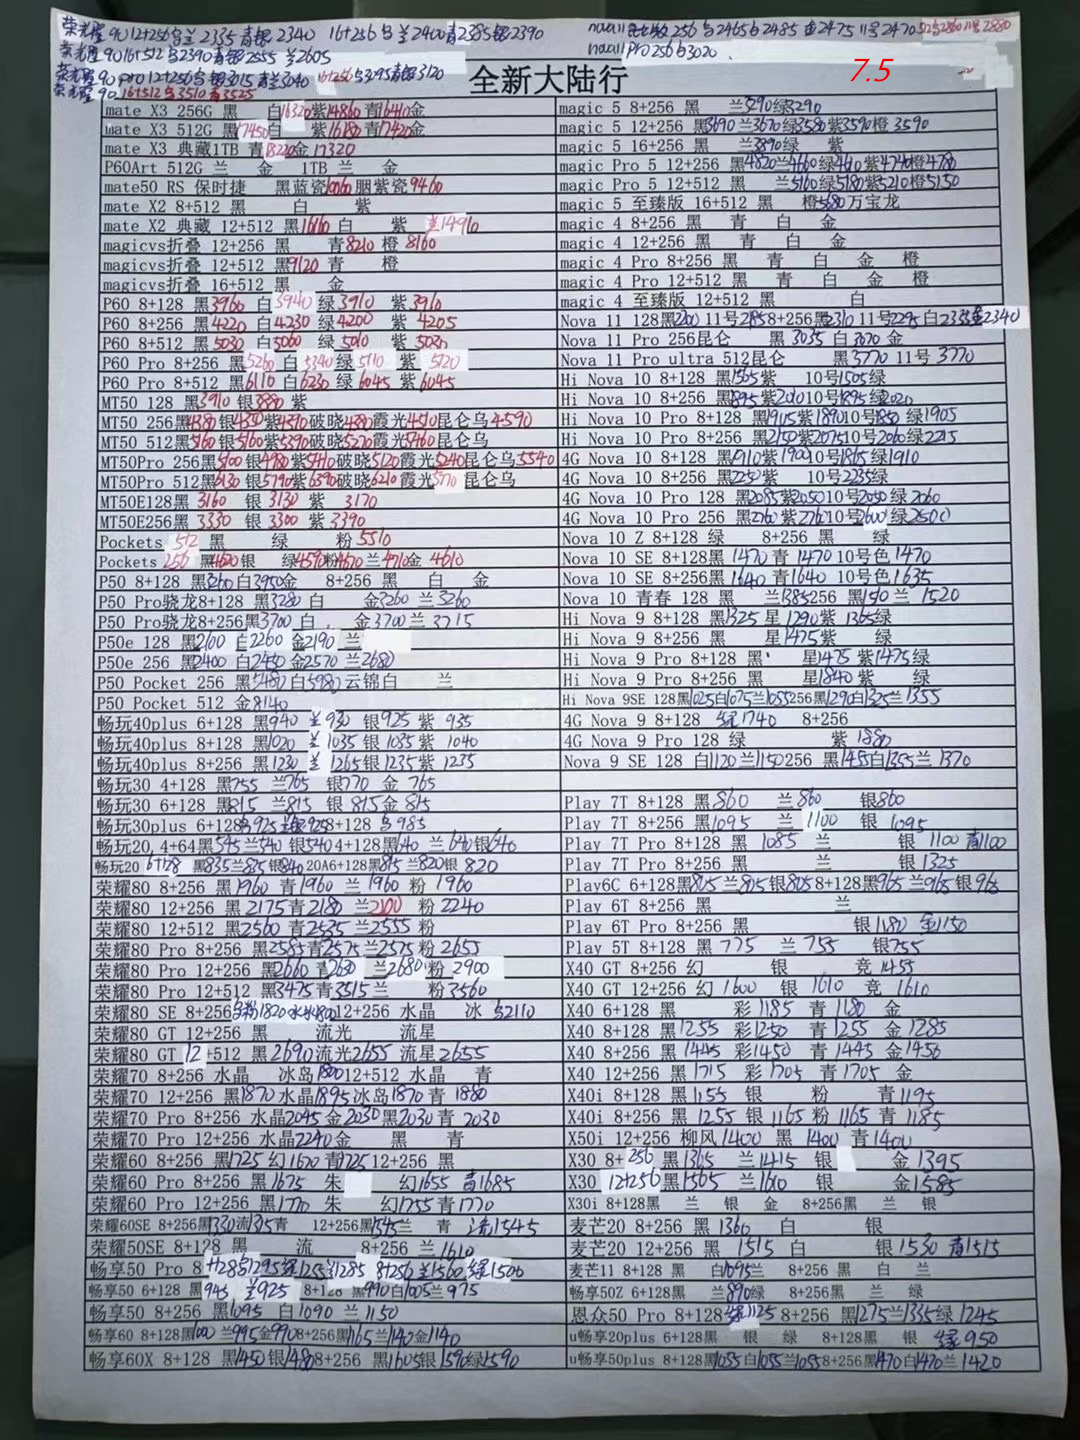 荣耀90 12+256乌兰2335青银2340 16+256乌兰2400青2385银2390
荣耀90 16+512乌2390青银2555 兰2605
荣耀90 pro 12+256乌银3015 青兰3040 16+256乌3095青银3120
荣耀90 16+512乌3510青3525
256乌2465白2485金2475 11号2470
Pro 256白3020
7.5
全新大陆行
mate X3 256G 黑 白16320紫14860青16410金
mate X3 512G 黑17450白 紫16180青17420金
mate X3 典藏1TB 青18220金17320
P60Art 512G 兰 金 1TB 兰 金
mate50 RS 保时捷 黑蓝瓷10060胭紫瓷9460
mate X2 8+512 黑 白 紫
mate X2 典藏 12+512 黑16110 白 紫 兰14910
magicvs折叠 12+256 黑 青8210 橙 8160
magicvs折叠 12+512 黑9120 青 橙
magicvs折叠 16+512 黑 金
P60 8+128 黑3960 白3940 绿3910 紫3910
P60 8+256 黑4220 白4230 绿4200 紫 4205
P60 8+512 黑5030 白5060 绿5010 紫 5030
P60 Pro 8+256 黑5260 白5340绿5110 紫 5120
P60 Pro 8+512 黑6110 白6230 绿6045 紫6045
MT50 128 黑3910 银3880 紫
MT50 256黑4380银4350紫4390破晓4380霞光4510昆仑乌4590
MT50 512黑5160银5160紫5390破晓5220霞光5460昆仑乌
MT50Pro 256黑5100银4980紫5410破晓5120霞光5240昆仑乌5540
MT50Pro 512黑6130银5790紫6390破晓6210霞光5770昆仑乌
MT50E128黑 3160 银 3130 紫 3170
MT50E256黑 3330 银 3300 紫 3390
Pockets 512 黑 绿 粉5510
Pockets 256 黑4620银 绿4590粉4670兰4710金 4610
P50 8+128 黑3260白3950金 8+256 黑 白 金
P50 Pro骁龙8+128 黑3280 白 金3260 兰3260
P50 Pro骁龙8+256黑3700 白 金3700兰3715
P50e 128 黑2100 白2260 金2190 兰
P50e 256 黑2400 白2450金2570 兰2680
P50 Pocket 256 黑5480白5980云锦白 兰
P50 Pocket 512 金8140
畅玩40plus 6+128 黑940 兰930 银925 紫 935
畅玩40plus 8+128 黑1020 兰1035 银1035 紫 1040
畅玩40plus 8+256 黑1230 兰1265银1235紫1235
畅玩30 4+128 黑755 兰765 银770 金 765
畅玩30 6+128 黑815 兰815 银 815金 815
畅玩30plus 6+128乌925兰银925 8+128 乌985
畅玩20 4+64黑545兰540 银540 4+128黑640 兰640银640
畅玩20 6+128 黑835兰835银840 20A6+128黑815兰820银 820
荣耀80 8+256 黑1960 青1960 兰1960 粉 1960
荣耀80 12+256 黑2175青2180 兰2100 粉2240
荣耀80 12+512 黑2560 青2535兰2555 粉
荣耀80 Pro 8+256 黑2585青2575兰2575粉2655
荣耀80 Pro 12+256 黑2660 青2680 兰2680粉 2900
荣耀80 Pro 12+512 黑3475青3515兰 粉3560
荣耀80 SE 8+256乌粉1820水冰1800 12+256 水晶 冰 乌2110
荣耀80 GT 12+256 黑 流光 流星
荣耀80 GT 12+512 黑2690流光2655 流星2655
荣耀70 8+256 水晶 冰岛1800 12+512 水晶 青
荣耀70 12+256 黑1870水晶1895冰岛1870青 1880
荣耀70 Pro 8+256 水晶2045金2030黑2030青 2030
荣耀70 Pro 12+256 水晶2240金 黑 青
荣耀60 8+256 黑1725幻1670青1725 12+256 黑
荣耀60 Pro 8+256 黑1675 朱 幻1655 青1685
荣耀60 Pro 12+256 黑1770 朱 幻1755青1770
荣耀60SE 8+256黑1330流1315青 12+256黑1545兰 青 流1545
荣耀50SE 8+128 黑 流 8+256 兰1610
畅享50 Pro 8+128乌1295绿1255兰1285 8+256兰1560绿1500
畅享50 6+128黑945 兰925 8+128 黑990白1005兰975
畅享50 8+256 黑1095 白1090 兰1150
畅享60 8+128黑1000 兰995金990 8+256黑1165兰1140金1140
畅享60X 8+128 黑1450银1480 8+256 黑1605银1590绿1590
magic 5 8+256 黑 兰3290绿3290
magic 5 12+256 黑3690兰3670绿3580紫3590橙 3590
magic 5 16+256 黑 兰3890绿 紫
magic Pro 5 12+256 黑4820兰4660绿4610紫4740橙4780
magic Pro 5 12+512 黑 兰5160绿5180紫5210橙5150
magic 5 至臻版 16+512 黑 橙5680万宝龙
magic 4 8+256 黑 青 白 金
magic 4 12+256 黑 青 白 金
magic 4 Pro 8+256 黑 青 白 金 橙
magic 4 Pro 12+512 黑 青 白 金 橙
magic 4 至臻版 12+512 黑 白
Nova 11 128黑2200 11号2185 8+256黑2310 11号2295白2335金2340
Nova 11 Pro 256昆仑 黑 3035 白3070金
Nova 11 Pro ultra 512昆仑 黑3770 11号 3770
Hi Nova 10 8+128 黑1565紫 10号1505绿
Hi Nova 10 8+256 黑1895紫2010 10号1895绿2020
Hi Nova 10 Pro 8+128 黑1905紫1890 10号1850 绿1905
Hi Nova 10 Pro 8+256 黑2150紫2075 10号2060绿2215
4G Nova 10 8+128 黑1910紫1900 10号1865绿1910
4G Nova 10 8+256 黑2250紫 10号2235绿
4G Nova 10 Pro 128 黑2085紫2050 10号2050 绿2060
4G Nova 10 Pro 256 黑2760紫2760 10号2600 绿2500
Nova 10 Z 8+128 绿 8+256 黑 绿
Nova 10 SE 8+128黑1470青 1470 10号色1470
Nova 10 SE 8+256黑1640青1640 10号色1635
Nova 10 青春 128 黑 兰1385 256黑1510兰 1520
Hi Nova 9 8+128 黑1325 星1290紫1365绿
Hi Nova 9 8+256 黑 星1475紫 绿
Hi Nova 9 Pro 8+128 黑 星1475紫1475绿
Hi Nova 9 Pro 8+256 黑 星1840紫 绿
Hi Nova 9SE 128黑1025白1075兰1055 256黑1290白1325兰1355
4G Nova 9 8+128 绿1740 8+256
4G Nova 9 Pro 128 绿 紫 1880
Nova 9 SE 128 白1120兰1150 256 黑1455白1355兰1370
Play 7T 8+128 黑860 兰860 银860
Play 7T 8+256 黑1095 兰 1100 银 1095
Play 7T Pro 8+128 黑 1085 兰 银 1100 青1100
Play 7T Pro 8+256 黑 兰 银1325
Play6C 6+128黑805兰805银805 8+128黑965兰965银965
Play 6T 8+256 黑 兰
Play 6T Pro 8+256 黑 银1180 金1150
Play 5T 8+128 黑 775 兰 755 银755
X40 GT 8+256 幻 银 竞 1455
X40 GT 12+256 幻 1600 银 1610 竞 1610
X40 6+128 黑 彩1185 青1180 金
X40 8+128 黑1255 彩1250 青1255 金1285
X40 8+256 黑1445 彩1450 青1445 金1456
X40 12+256 黑1715 彩1705 青1705 金
X40i 8+128 黑1155 银 粉 青1195
X40i 8+256 黑 1255 银1165 粉1165 青1185
X50i 12+256 柳风1400 黑 1400 青1400
X30 8+256 黑1365 兰1415 银 金1395
X30 12+256黑1565 兰1610 银 金1585
X30i 8+128黑 兰 银 金 8+256黑 兰 银
麦芒20 8+256 黑1360 白 银
麦芒20 12+256 黑 1515 白 银1530 青1515
麦芒11 8+128 黑 白1095兰 8+256 黑 白 兰
畅享50Z 6+128黑 兰890绿 8+256黑 兰 绿
恩众50 Pro 8+128绿1125 8+256 黑1275兰1335绿1245
u畅享20plus 6+128黑 银 绿 8+128黑 银 绿950
u畅享50plus 8+128黑1055白1055兰1055 8+256黑1470白1470兰1420